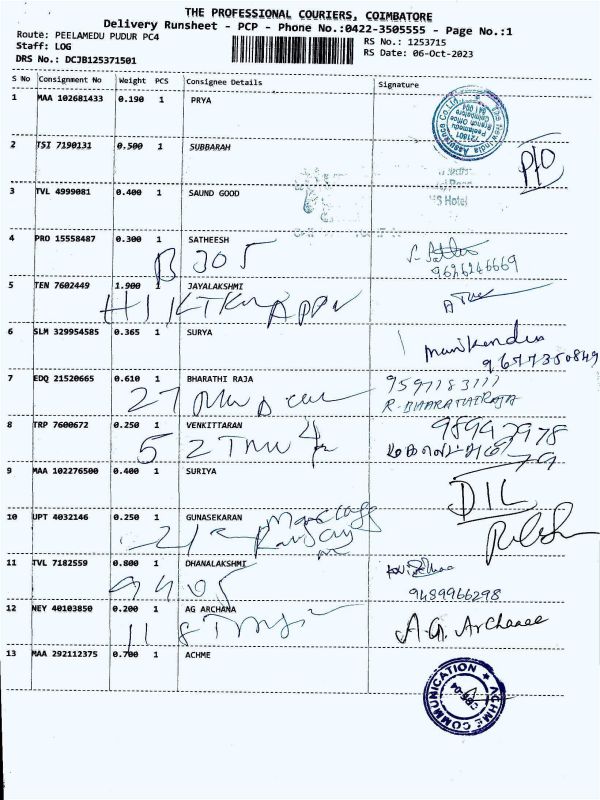 THE PROFESSIONAL COURIERS, COIMBATORE
Delivery Runsheet - PCP - Phone No.:0422-3505555 - Page No.:1
Route: PEELAMEDU PUDUR PC4
RS No.: 1253715
Staff: LOG
RS Date: 06-Oct-2023
DRS No.: DCJB125371501
S No Consignment No Weight PCS Consignee Details Signature
1 MAA 102681433 0.190 1 PRYA
The New India Assurance Co. Ltd.
721801
Peelamedu
Branch Office
Coimbatore
641 004
2 TSI 7190131 0.500 1 SUBBARAH
P/O
3 TVL 4999081 0.400 1 SAUND GOOD
S Hotel
4 PRO 15558487 0.300 1 SATHEESH
B 305
9626246669
5 TEN 7602449 1.900 1 JAYALAKSHMI
6 SLM 329954585 0.365 1 SURYA
Manikandan
9677350849
7 EDQ 21520665 0.610 1 BHARATHI RAJA
27
9597183111
R. BHARATHIRAJA
8 TRP 7600672 0.250 1 VENKITTARAN
5 2
98942978
79
9 MAA 102276500 0.400 1 SURIYA
DIL
10 UPT 4032146 0.250 1 GUNASEKARAN
11 TVL 7182559 0.800 1 DHANALAKSHMI
9405
9489966298
12 NEY 40103850 0.200 1 AG ARCHANA
11
A.G. Archanaa
13 MAA 292112375 0.700 1 ACHME
ACHME COMMUNICATION
CBE-04